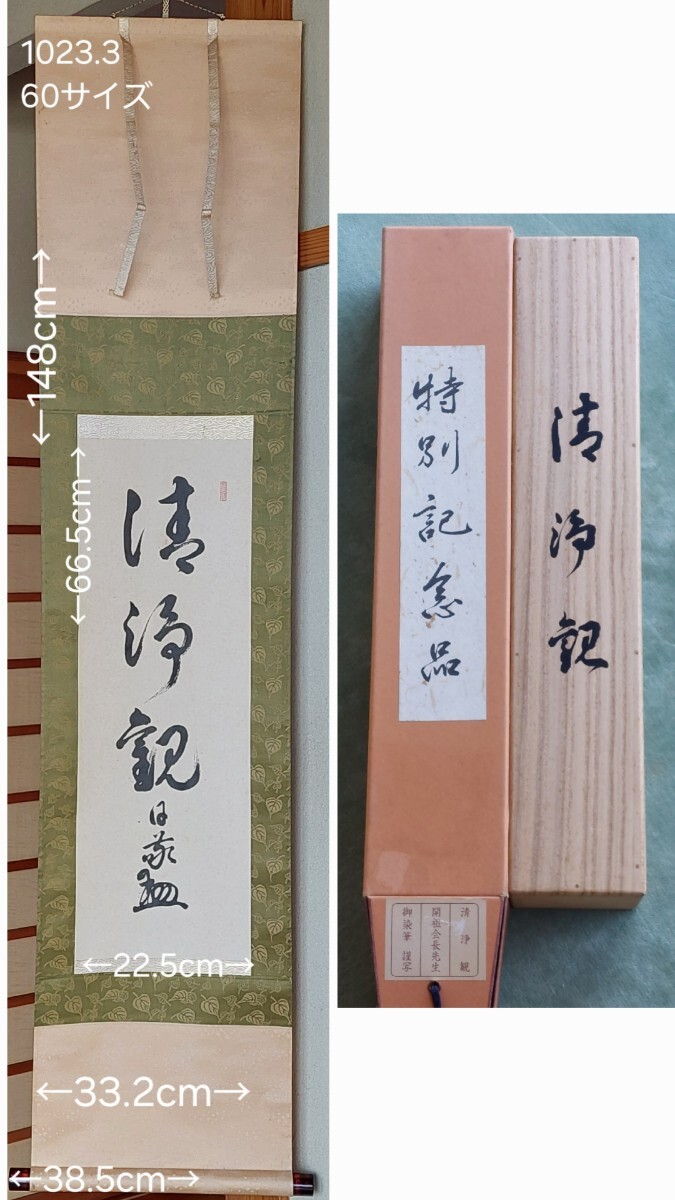 1023.3
60サイズ
←148cm→
←66.5cm→
清浄観
日敬
←22.5cm→
←33.2cm→
←38.5cm→
特別記念品
清浄観
清浄観
開祖会長先生
御染筆 謹写